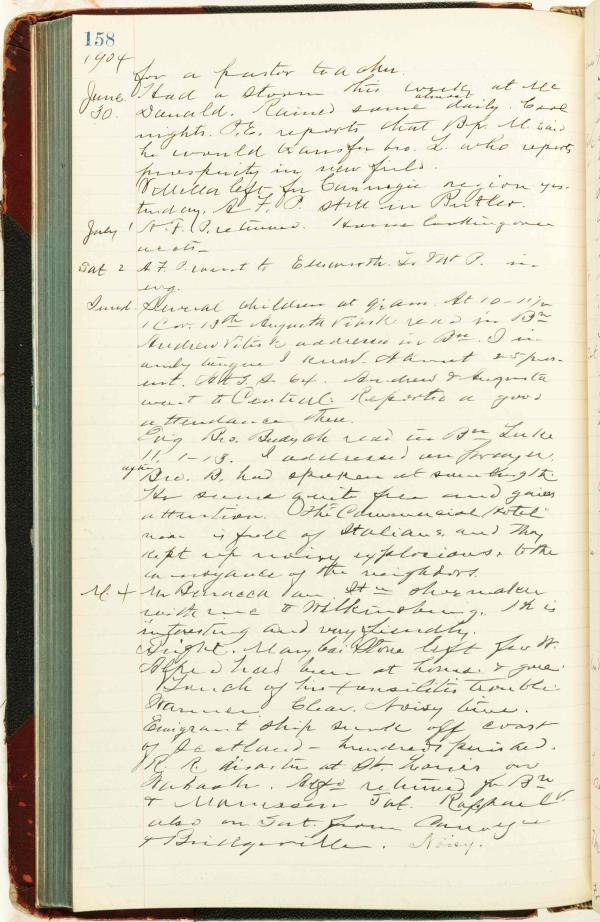 158
1904
for a pastor teacher.
June Had a storm this week at Mc
30. Donald. Rained some almost daily. Cool
nights. reports that Bp. M. said
he would transfer bro. L. who reports
prosperity in new field.
V. Miller left for Carnegie region yes-
terday. A. F. P. still in Butler.
July 1 A. F. P. returned. Home looking over
Sat 2 A. F. P. went to Ellsworth. to Mt P. in
evg.
Sund. Several children at gram. At 10-11
1 Cor. 13th Augusta read in Bn
Andrew addressed in Bn. I in
only tongue I know. About 25 pres-
ent. At S. S. 64. Andrew & Augusta
went to Central. Reported a good
attendance there.
Evg Bro. read in Bn Luke
11, 1-13. I addressed on prayer,
after Bro. B. had spoken at some length.
He seems quite free and gains
attention. "The Commercial Hotel"
near is full of Italians, and they
kept up noisy explosions, to the
annoyance of the neighbors.
M. 4 Mr an Itn shoemaker
with me to Wilkinsburg. He is
interesting and very friendly.
bright. Mary left for W.
Alfred had been at home & gone.
Bunch of his tonsilitis trouble.
Warmer. Clear. Noisy time.
Emigrant ship sunk off coast
of Scotland - hundreds perished.
R. R. disaster at St. Louis on
Wabash. returned fr Bn
& Morrison Sat. Raffael V.
also on Sat. from Carnegie
& Bridgeville. Noisy.